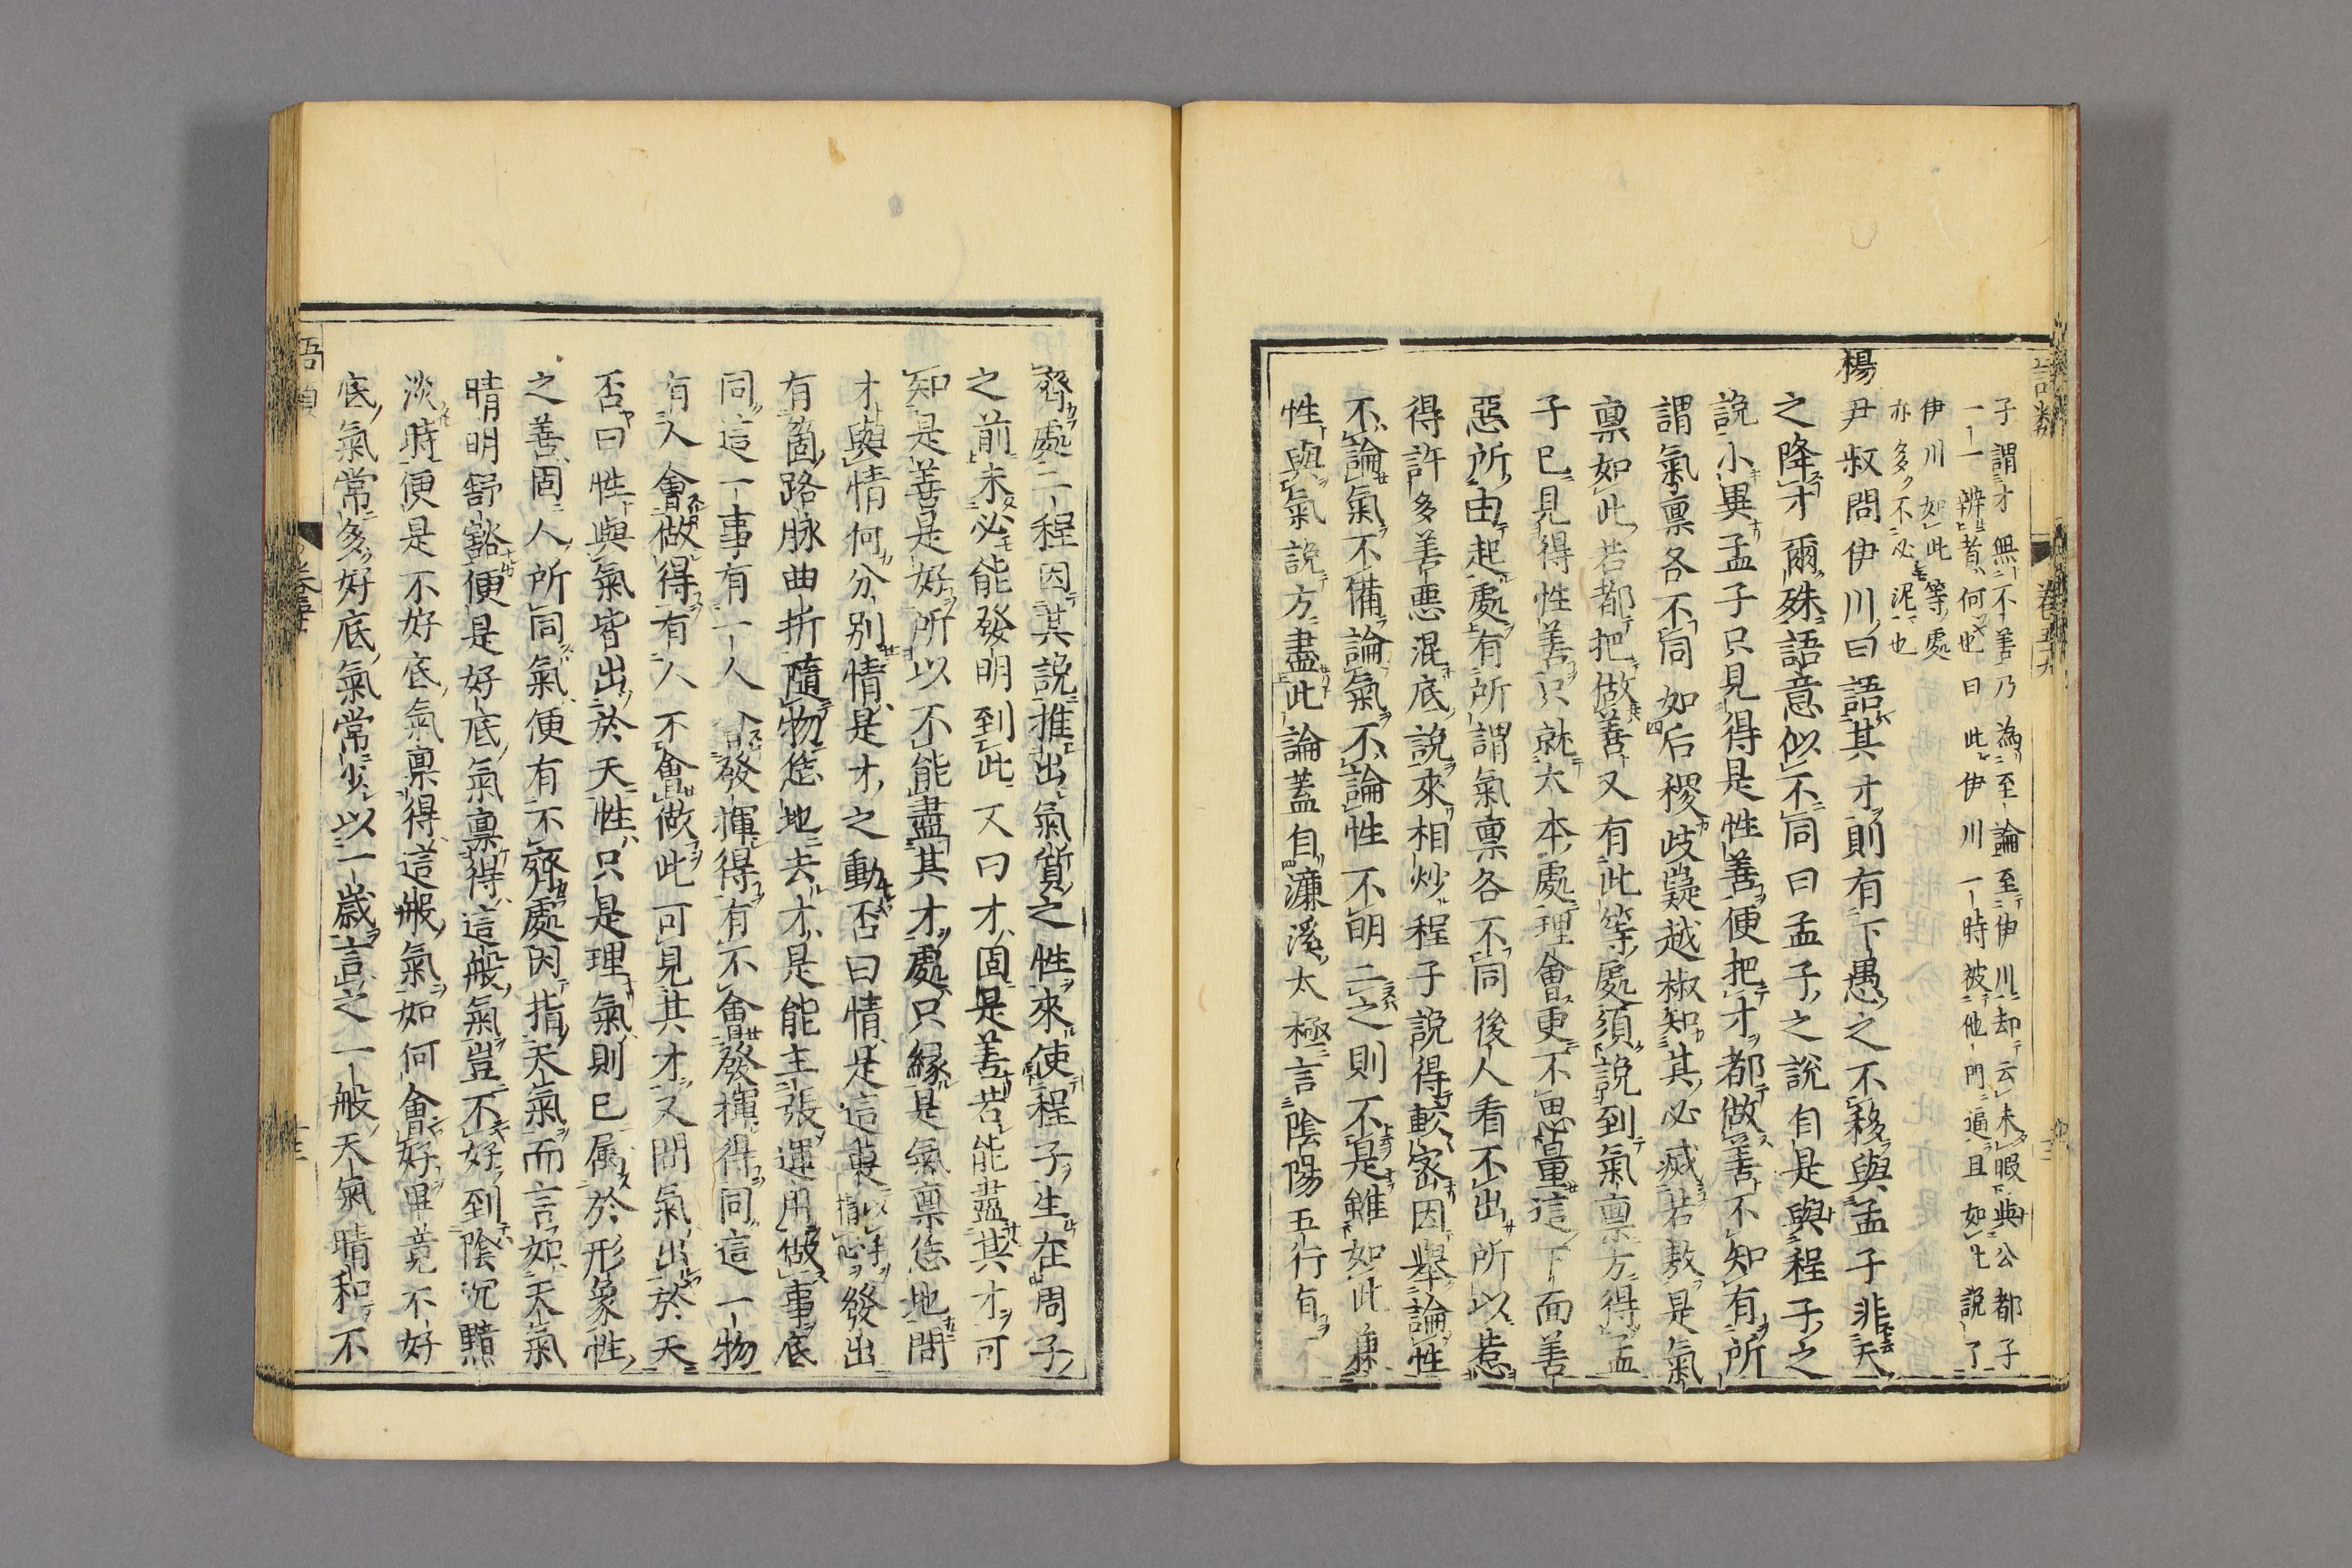 語類 卷五十九
子謂才無不善乃為至論至伊川却云未暇與公都子
一一辨者何也曰此伊川一時被他門逼且如此說了
伊川如此等處
亦多不必泥也
楊尹叔問伊川曰語其才則有下愚之不移與孟子非天
之降才爾殊語意似不同曰孟子之說自是與程子之
說小異孟子只見得是性善便把才都做善不知有所
謂氣禀各不同如后稷岐嶷越椒知其必滅若敖是氣
禀如此若都把做善又有此等處須說到氣禀方得孟
子已見得性善只就大本處理會更不思量這下面善
惡所由起處有所謂氣禀各不同後人看不出所以惹
得許多善惡混底說來相炒程子說得較密因舉論性
不論氣不備論氣不論性不明二之則不是雖如此兼
性與氣說方盡此論蓋自濂溪太極言陰陽五行有不
齊處二程因其說推出氣質之性來使程子生在周子
之前未必能發明到此又曰才固是善若能盡其才可
知是善是好所以不能盡其才處只緣是氣禀恁地問
才與情何分別情是才之動否曰情是這裏以手指心發出
有箇路脉曲折隨物恁地去才是能主張運用做事底
同這一事有一人會發揮得有不會發揮得同這一物
有人會做得有人不會做此可見其才又問氣出於天
否曰性與氣皆出於天性只是理氣則已属於形象性
之善固人所同氣便有不齊處因指天氣而言如天氣
晴明舒豁便是好底氣禀得這般氣豈不好到陰沉黯
淡時便是不好底氣禀得這般氣如何會好畢竟不好
底氣常多好底氣常少以一歲言之一般天氣晴和不
語類 卷五十九